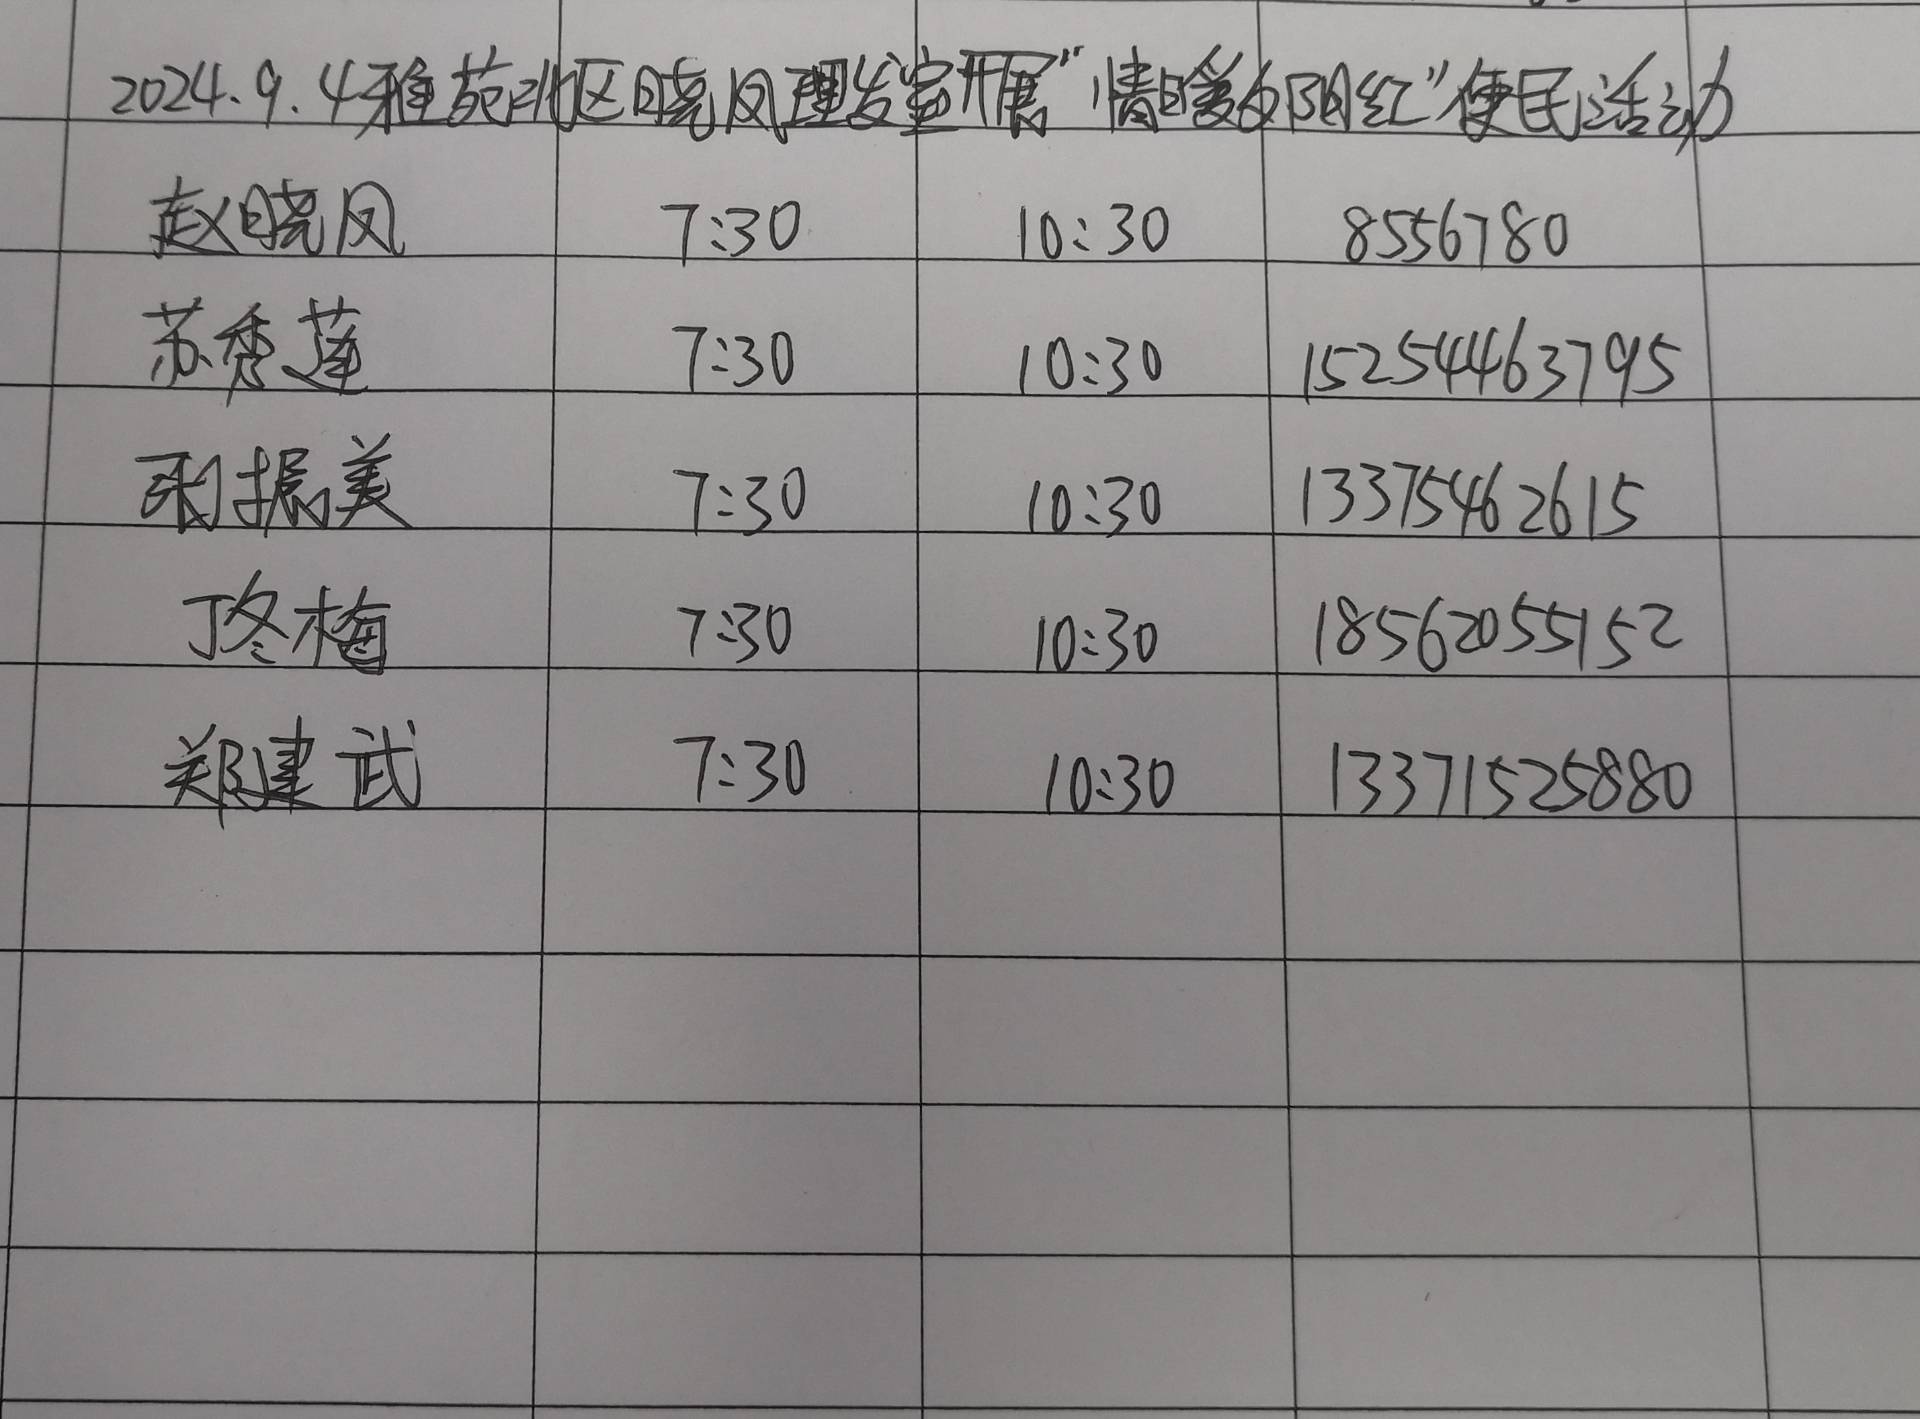 2024.9.4雅苑北区晓凤理发室开展"情暖夕阳红"便民活动
赵晓凤 7:30 10:30 8556780
苏秀莲 7:30 10:30 15254463795
振美 7:30 10:30 13375462615
丁冬梅 7:30 10:30 18562055152
郑建武 7:30 10:30 13371525880